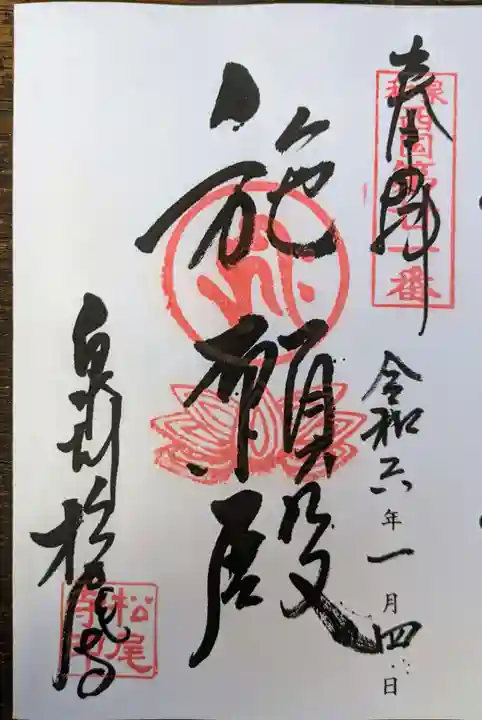 奉拝
令和六年一月四日
施願殿
泉州松尾寺
松尾寺印